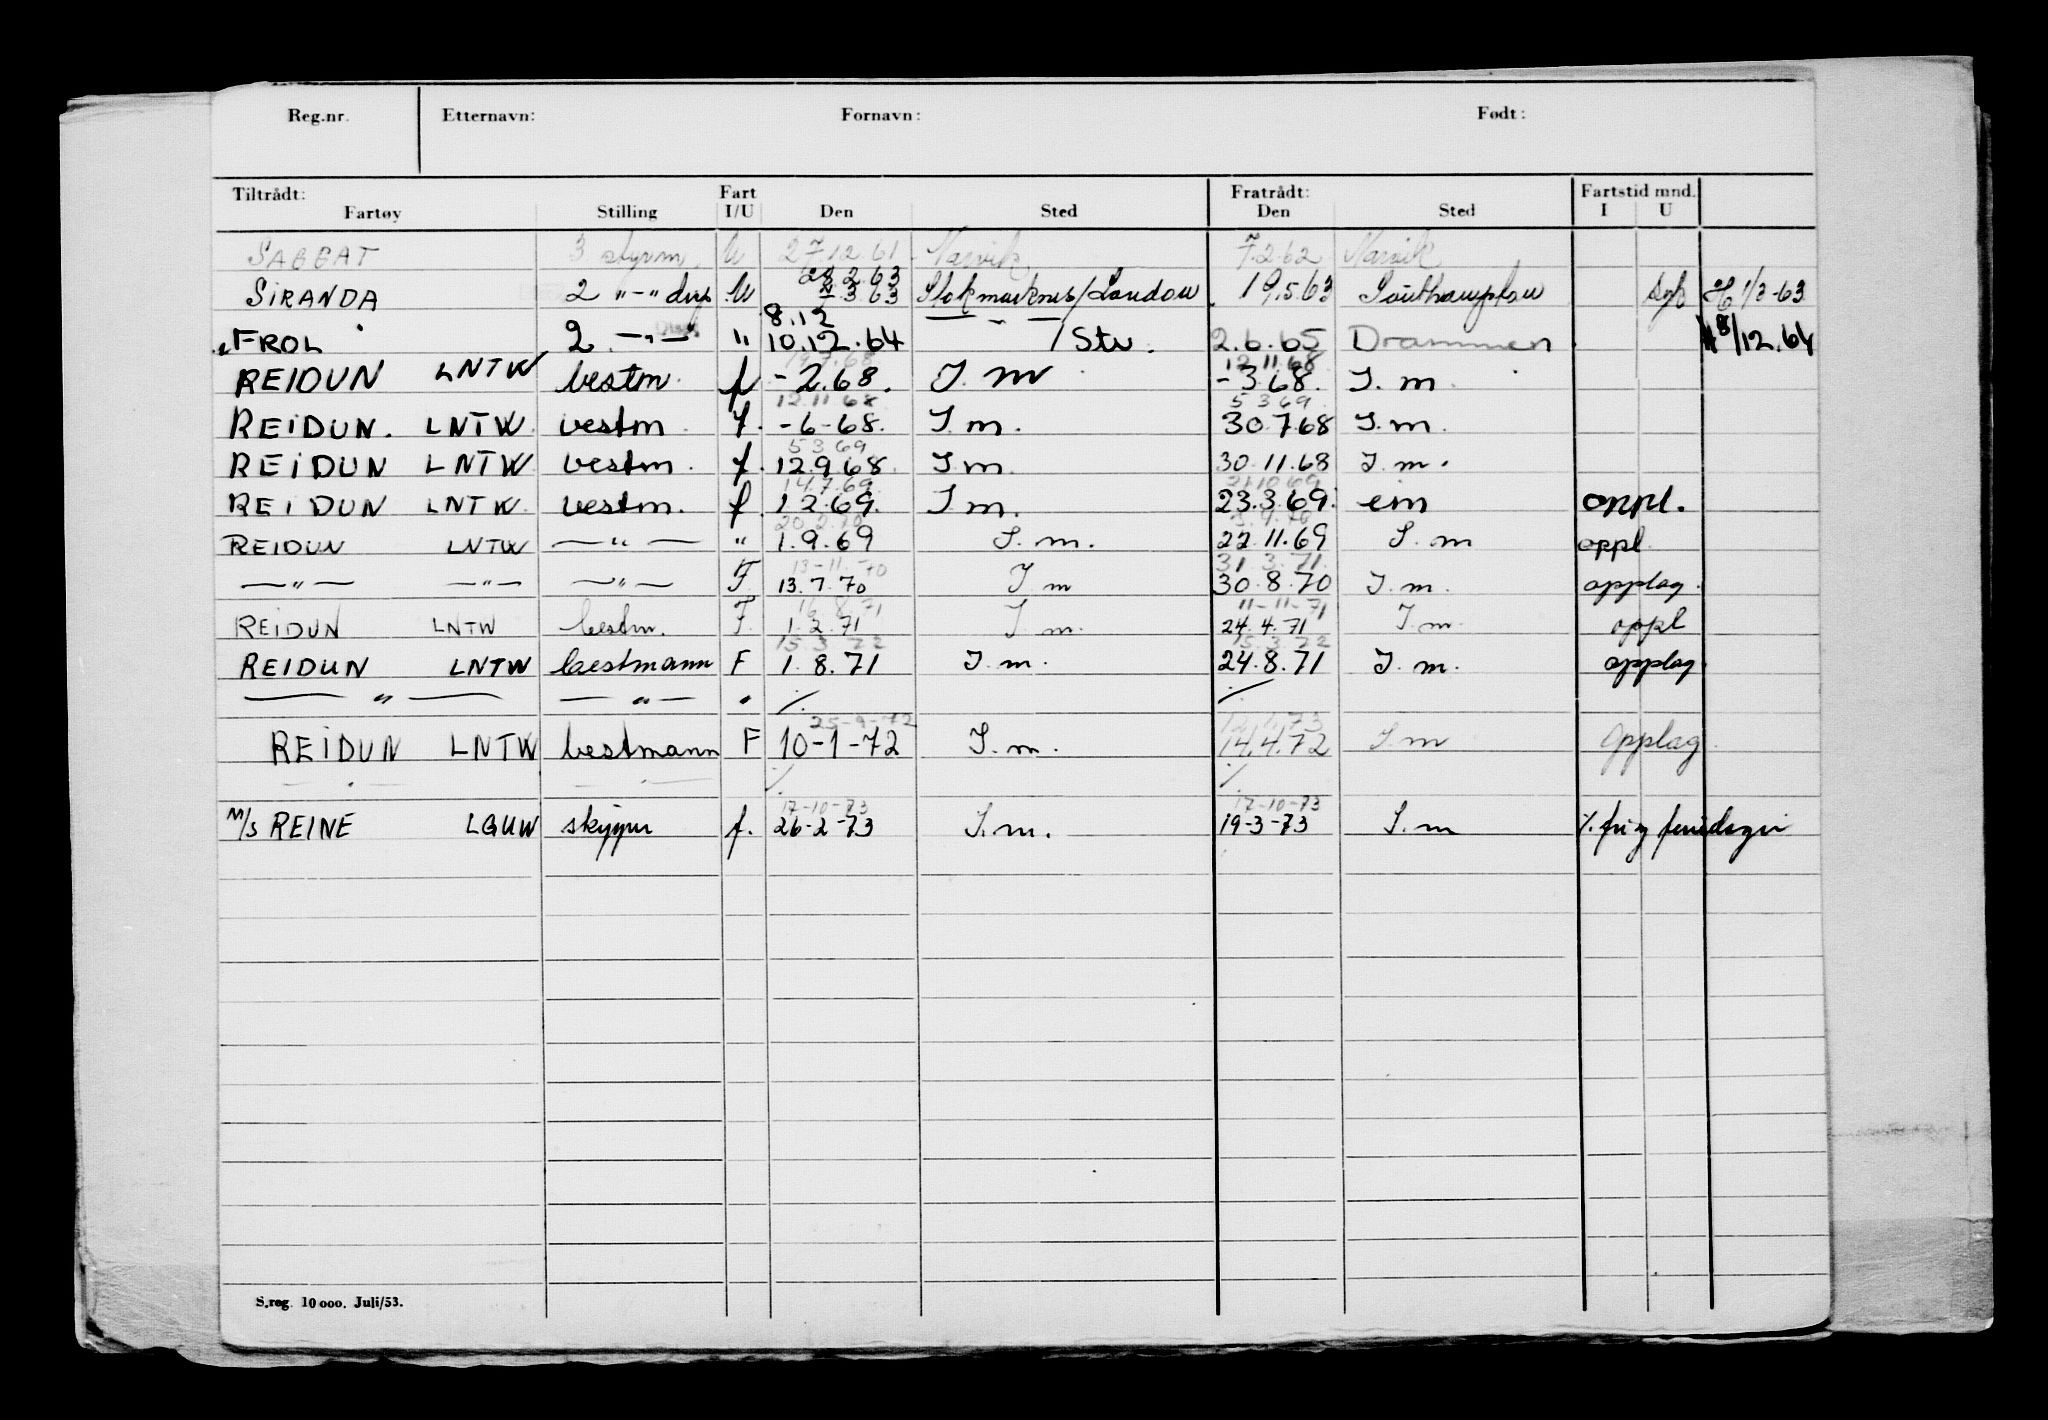 Reg.nr. Etternavn: Fornavn: Født:
Tiltrådt: Fart Fratrådt: Fartstid mnd.
Fartøy Stilling I/U Den Sted Den Sted I U
SAGGAT 3 styrm. U 27.12.61 Narvik 7.2.62 Narvik
28.2.63
SIRANDA 2 "-" U 3 63 Stokmarknes/London 19.5.63 Southampton 1/3-63
8.12
FROL 2 —"— " 10.12.64 — " — / Stv. 2.6.65 Drammen 8/12.64
19.7.68 12.11.68
REIDUN LNTW bestm. f -2.68. I. m -3.68. I. m.
12.11 68 5 3 69
REIDUN. LNTW. bestm. f. -6-68. I. m. 30.7.68 I. m.
5 3 69
REIDUN LNTW bestm. f. 12.9.68. I m. 30.11.68 I. m.
14.7.69. 21.10 69
REIDUN LNTW. bestm. f. 1 2.69. I m. 23.3.69. eim oppl.
20 2.70
REIDUN LNTW —"— " 1.9.69 I. m. 22.11.69 I. m oppl.
13-11.-70 31.3.71.
—"— —"— —"— F. 13.7.70 I m 30.8.70 I. m. opplag.
16.8.71 11-11-71
REIDUN LNTW bestm. F. 1.2.71 I. m. 24.4.71 I. m. oppl
15.3.72 15.3.72
REIDUN LNTW bestmann F 1.8.71 I. m. 24.8.71 I. m. opplag.
— " — — " — " ⁒ ⁒
25-9-72 12.1.73
REIDUN LNTW bestmann F 10-1-72 I. m. 14.4.72 I. m opplag.
— " — — " — ⁒ ⁒
17-10-73 17-10-73
M/S REINE LGUW skipper f. 26-2-73 I. m. 19-3-73 I. m ⁒ fri og feriedager
S.reg. 10 000. Juli/53.